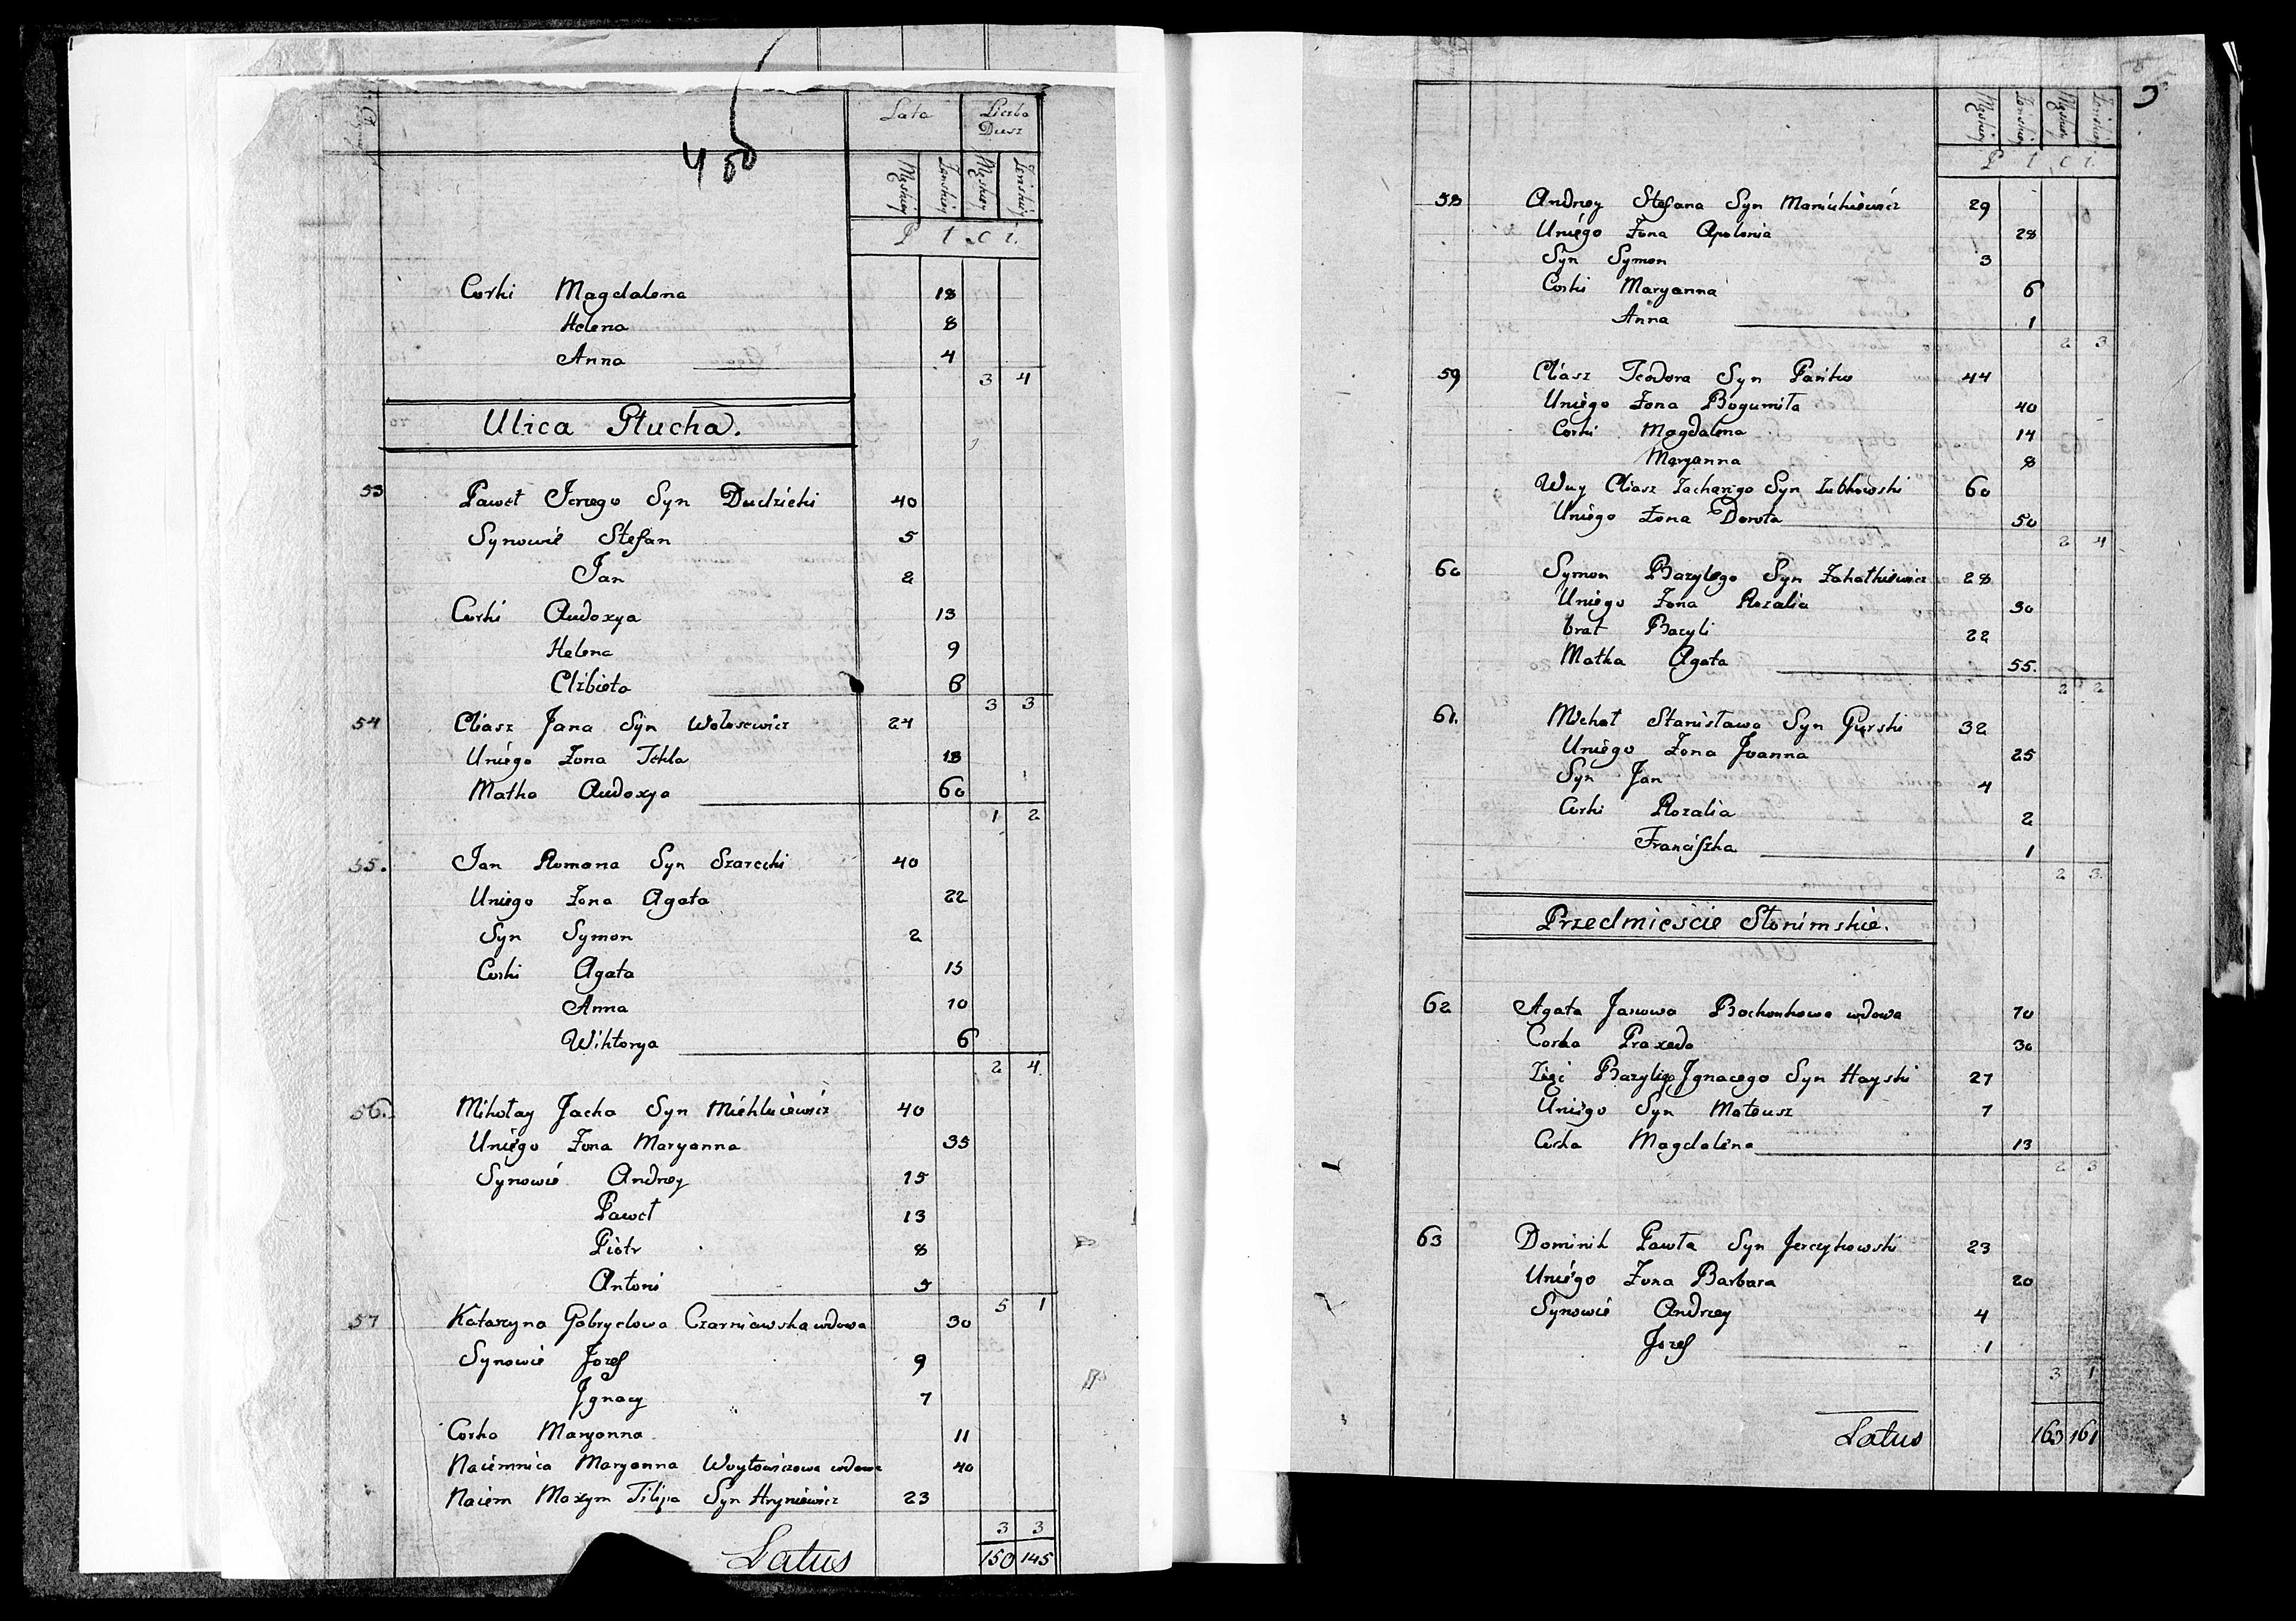 Lata Liczba Dusz
450
Męskiey Żenskiey Męskiey Żenskiey
P ł c i.
Corki Magdalena 18
Helena 8
Anna 4
3 4
Ulica Płucha.
53 Paweł Jerzego Syn Dudzicki 40
Synowie Stefan 5
Jan 2
Corki Audoxya 13
Helena 9
Elżbieta 6
3 3
54 Eliasz Jana Syn Wołosewicz 24
Uniego Żona Tekla 18
Matka Audoxya 60
1 2
55. Jan Romana Syn Szarecki 40
Uniego Żona Agata 22
Syn Symon 2
Corki Agata 15
Anna 10
Wiktorya 6
2 4
56. Mikołay Jacka Syn Michluciewicz 40
Uniego Żona Maryanna 35
Synowie Andrzey 15
Paweł 13
Piotr 8
Antoni 5
5 1
57 Katarzyna Gabryelowa Czarniawska wdowa 30
Synowie Jozef 9
Jgnacy 7
Corka Maryanna 11
Naiemnica Maryanna Woytowiczowa wdowa 40
Naiem Maxym Filipa Syn Hryniewicz 23
3 3
Latus 150 145
Męskiey Żenskiey Męskiey Żenskiey
P ł c i.
58 Andrzey Stefana Syn 29
Uniego Żona Apolonia 28
Syn Symon 3
Corki Maryanna 6
Anna 1
2 3
59 Eliasz Teodora Syn Pańko 44
Uniego Żona Bogumiła 40
Corki Magdalena 14
Maryanna 8
Wuy Eliasz Zacharigo Syn Zubkowski 60
Uniego Żona Dorota 50
2 4
60 Symon Bazylego Syn Zahatkiewicz 28
Uniego Żona Rozalia 30
brat Bazyli 22
Matka Agata 55.
2 2
61. Michał Stanisława Syn Gurski 32
Uniego Żona Joanna 25
Syn Jan 4
Corki Rozalia 2
Franciszka 1
2 3
Przedmieście Słonimskie.
62 Agata Janowa Bochonkowa wdowa 70
Corka Praxeda 30
Zięć Bazyligo Jgnacego Syn Hayski 27
Uniego Syn Mateusz 7
Corka Magdalena 13
2 3
63 Dominik Pawła Syn Jerczykowski 23
Uniego Żona Barbara 20
Synowie Andrzey 4
Jozef 1
3 1
Latus 163 161